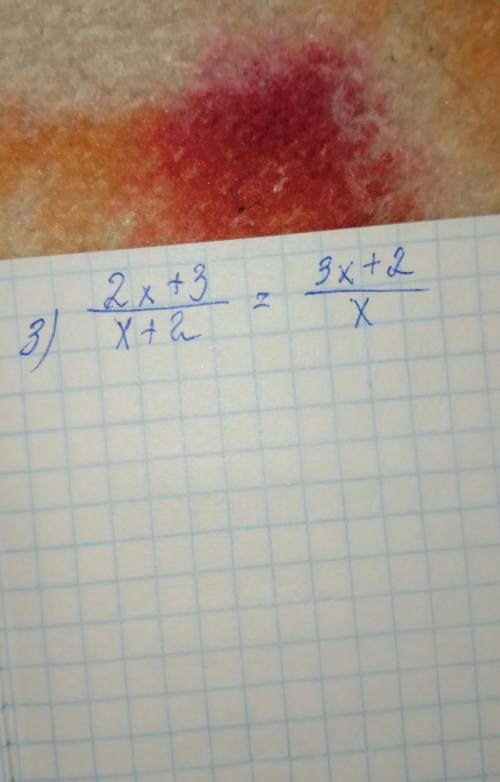 3) (2x+3)/(x+2) = (3x+2)/x